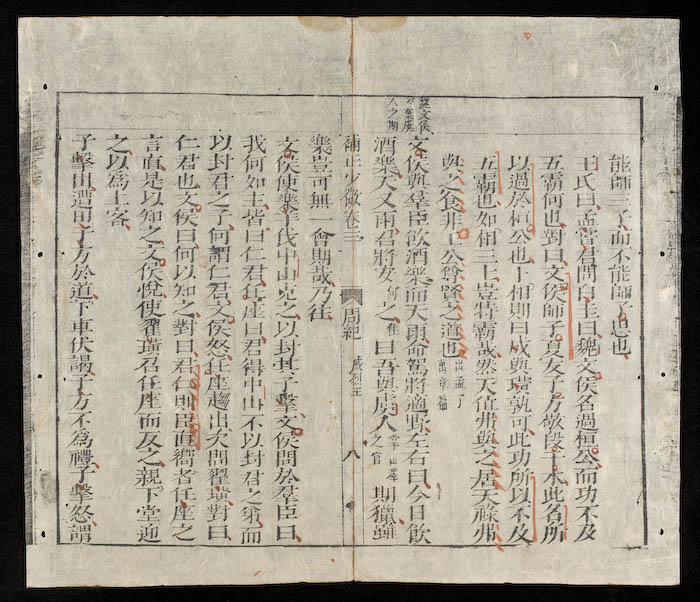 能師三子而不能師子思也
王氏曰孟嘗君問白圭曰魏文侯名過桓公而功不及
五霸何也對曰文侯師子夏友子方敬段干木此名所
以過於桓公也卜相則曰成與璜孰可此功所以不及
五霸也如相三士豈特霸哉然天位弗與之居天祿弗
與之食非王公尊賢之道也出孟子萬章篇
魏文侯不棄虞人之期
文侯與羣臣飲酒樂而天雨命駕將適野左右曰今日飲
酒樂天又雨君將安之何往曰吾與虞人掌山澤之官期獵雖
補正少微卷三 周紀 威烈王 八
樂豈可無一會期哉乃往
文侯使樂羊伐中山克之以封其子擊文侯問於羣臣曰
我何如主皆曰仁君任座曰君得中山不以封君之弟而
以封君之子何謂仁君文侯怒任座趨出次問翟璜對曰
仁君也文侯曰何以知之對曰君仁則臣直嚮者任座之
言直是以知之文侯悅使翟璜召任座而反之親下堂迎
之以為上客
子擊出遭田子方於道下車伏謁子方不為禮子擊怒謂